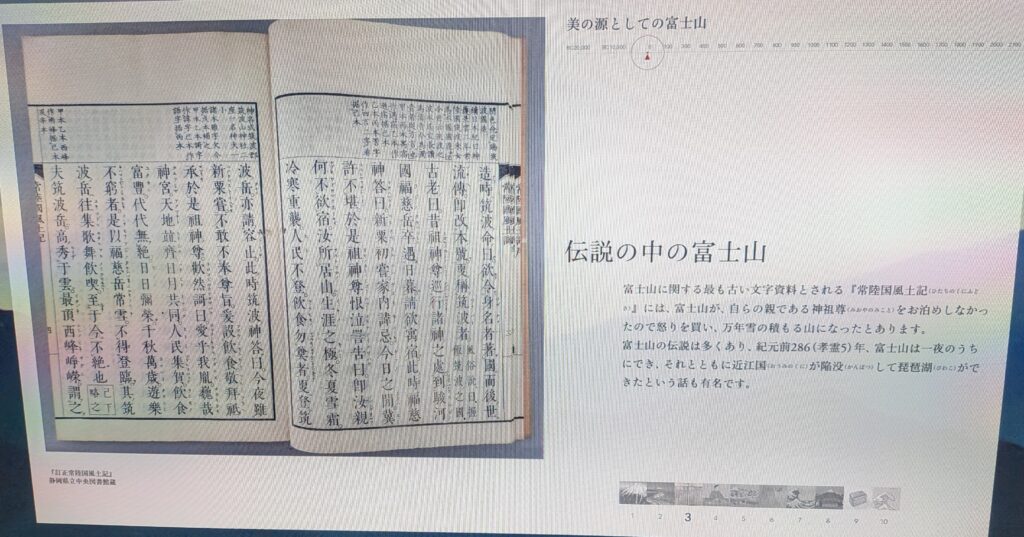 美の源としての富士山
BC20,000 BC10,000 0 100 200 300 400 500 600 700 800 900 1000 1100 1200 1300 1400 1500 1600 1700 1800 1900 2000 2100
造時筑波命曰欲令身名者著國而後世
流傳即改本號更稱筑波者
古老曰昔祖神尊巡行諸神之處到駿河
國福慈岳卒遇日暮請欲寓宿此時福慈
神答曰新粟初嘗家內諱忌今日之間冀
許不堪於是祖神尊恨泣詈告曰即汝親
何不欲宿汝所居山生涯之極冬夏雪霜
冷寒重襲人民不登飲食勿奠者更登筑
波岳亦請容止此時筑波神答曰今夜雖
新粟嘗不敢不奉尊旨爰設飲食敬拜祗
承於是祖神尊歡然謌曰愛乎我胤巍哉
神宮天地竝齊日月共同人民集賀飲食
富豐代代無絕日日彌榮千秋萬歲遊樂
不窮者是以福慈岳常雪不得登臨其筑
波岳往集歌舞飲喫至于今不絕也 已下略之
夫筑波岳高秀于雲最頂西峰崢嶸謂之
常陸國風土記
『訂正常陸国風土記』
静岡県立中央図書館蔵
伝説の中の富士山
富士山に関する最も古い文字資料とされる『常陸国風土記(ひたちのくにふど
き)』には、富士山が、自らの親である神祖尊(みおやのみこと)をお泊めしなかっ
たので怒りを買い、万年雪の積もる山になったとあります。
富士山の伝説は多くあり、紀元前286(孝霊5)年、富士山は一夜のうち
にでき、それとともに近江国(おうみのくに)が陥没(かんぼつ)して琵琶湖(びわこ)がで
きたという話も有名です。
1 2 3 4 5 6 7 8 9 10